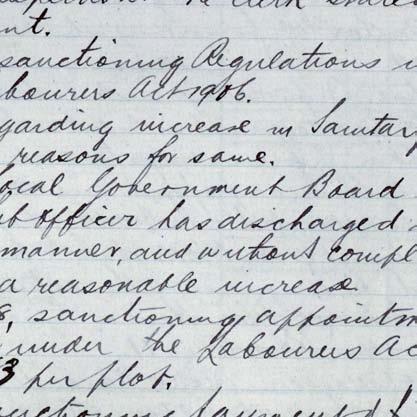 The Clerk stated
nt.
sanctioning Regulations
bourers Act 1906.
garding increase in Sanitar
reasons for same.
ocal Government Board
officer has discharged
manner, and without compl
a reasonable increase
8, sanctioning appointm
under the Labourers Ac
3 per plot.